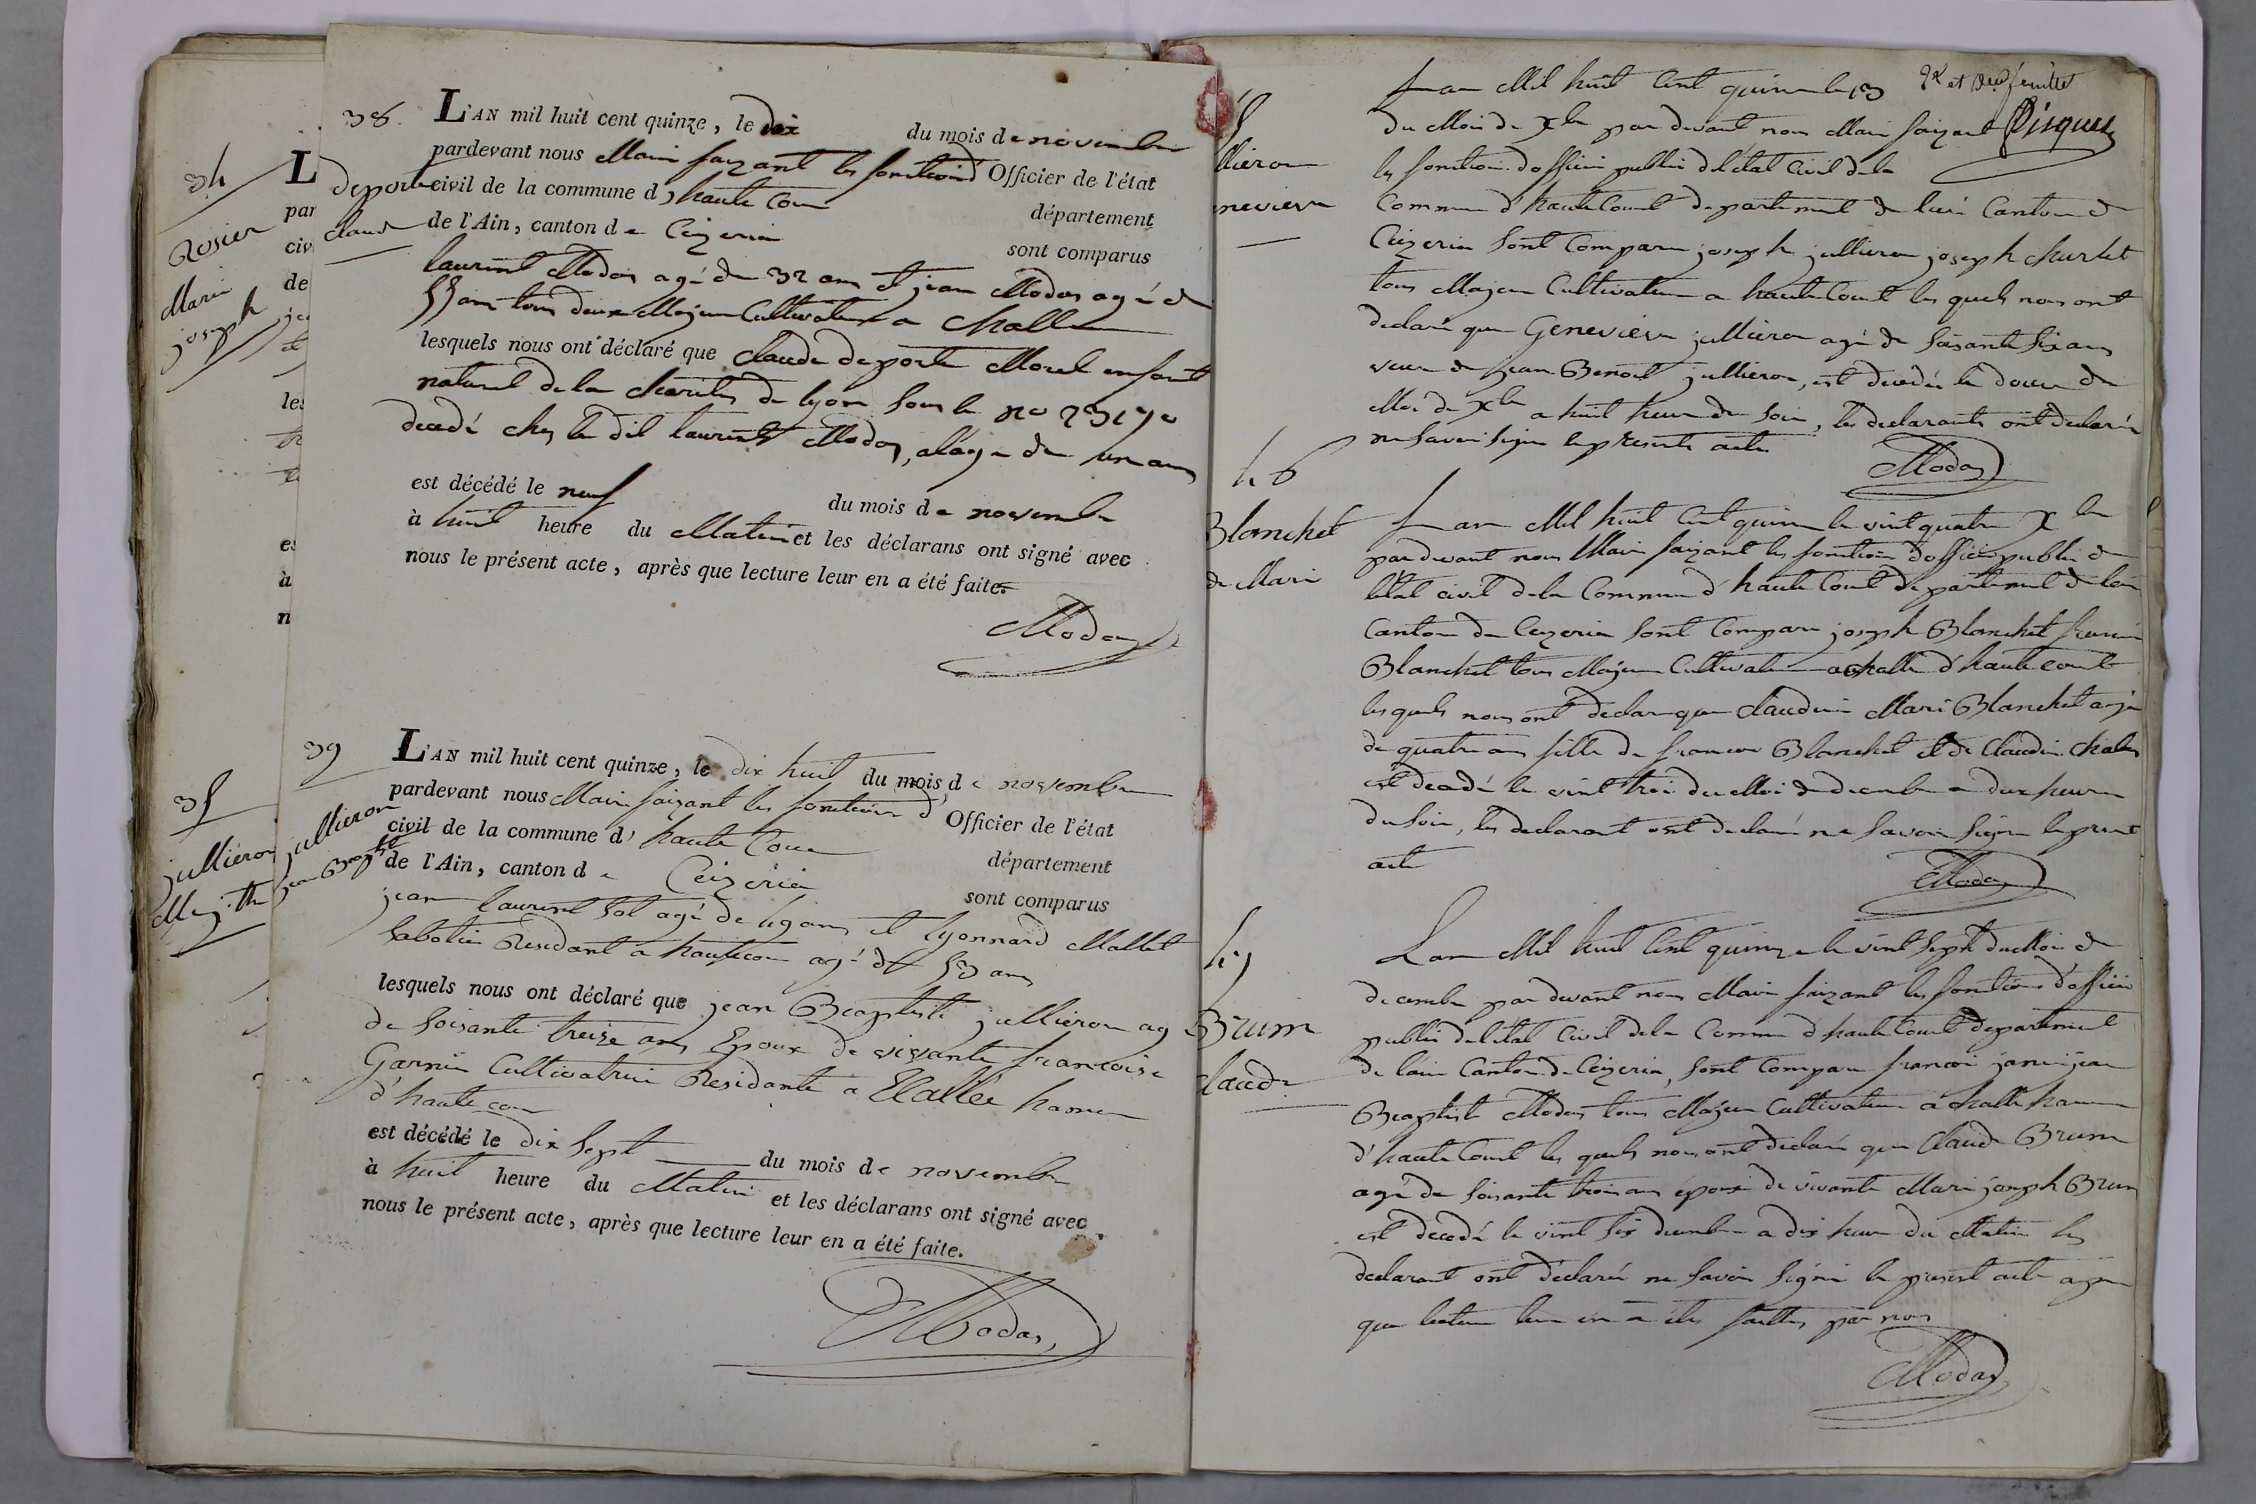 34
Rosier
Marie
joseph
35
jullieron
L
par
civ
de
les
es
à
n
38.
deporte
claude
L'AN mil huit cent quinze, le dix du mois de novembre
pardevant nous Maire faizant les fonctions d Officier de l'état
civil de la commune d'haute Cour département
de l'Ain, canton de Ceizeria sont comparus
laurent Modas agé de 32 ans et jean Modas agé de
55 ans tous deux Majeur Cultivateur a Challe
lesquels nous ont déclaré que claude deporte Morel enfant
naturel de la charité de lyon sous le no
decedé chez le dit laurent Modas, alage de un ans
est décédé le neuf du mois de novembre
à huit heure du Matin et les déclarans ont signé avec
nous le présent acte, après que lecture leur en a été faite.
Modas
39
jullieron
jean Bapte
L'AN mil huit cent quinze, le dix huit du mois de novembre
pardevant nous Maire faizant les fonctions d Officier de l'état
civil de la commune d'haute Cour département
de l'Ain, canton de Ceizeria sont comparus
jean laurent Sol agé de ans et lyonnard Mallet
Sabotier Residant a hautecour agé de 53 ans
lesquels nous ont déclaré que jean Beaptiste jullieron agé
de Soisante treize ans Epoux de vivante francoise
Garnier Cultivatrice Residante a Challe hameau
d'hautecour
est décédé le dix Sept du mois de novembre
à huit heure du Matin et les déclarans ont signé avec
nous le présent acte, après que lecture leur en a été faite.
Modas
llieron
nevieve
L an Mil huit Cent quinze le 13
du Moi de Xbre par devant nous Maire faizant
les fonction d'officier public de l'état Civil de la
Commune d'haute Court departement de lain Canton de
Ceizeria Sont Comparu joseph jullieron joseph Churlet
tous Majeur Cultivateur a haute Court les quels nous ont
declaré que Genevieve jullieron agé de Soisante Six ans
veuve de jean Benoit jullieron, est decedé le douze du
Moi de Xbre a huit heure du Soir, les declarants ont declaré
ne Savoir Signer le present acte
Modas
46
Blanchet
de Marie
L an Mil huit Cent quinze le vint quatre Xbre
par devant nous Maire faizant les fonction d'officier public de
létat civil de la Commune d'haute Court departement de lain
Canton de Ceizeria Sont Comparu joseph Blanchet francoi
Blanchet tous Majeur Cultivateur a challe d'haute court
les quels nous ont declaré que Claudine Marie Blanchet agé
de quatre ans fille de francoi Blanchet et de Claudine
est decedé le vint troi du Moi de decembre a deux heure
du Soir, les declarant ont declaré ne Savoir Signer le present
acte
Modas
47
Brun
claude
L an Mil huit Cent quinze le vint Sept du Moi de
decembre par devant nous Maire faizant les fonctions d'officier
public de létat Civil de la Commune d'haute Court departement
de lain Canton de Ceizeria, Sont Comparu francoi jean
Beaptiste Modas tous Majeur Cultivateur a challe hameau
d'haute Court les quels nous ont declaré que Claude Brun
agé de Soisante trois ans époux de vivante Marie joseph Brun
est decedé le vint Six decembre a dix heure du Matin les
declarant ont déclaré ne Savoir Signer le present acte apres
que lecture leur en a été faittes par nous
Modas